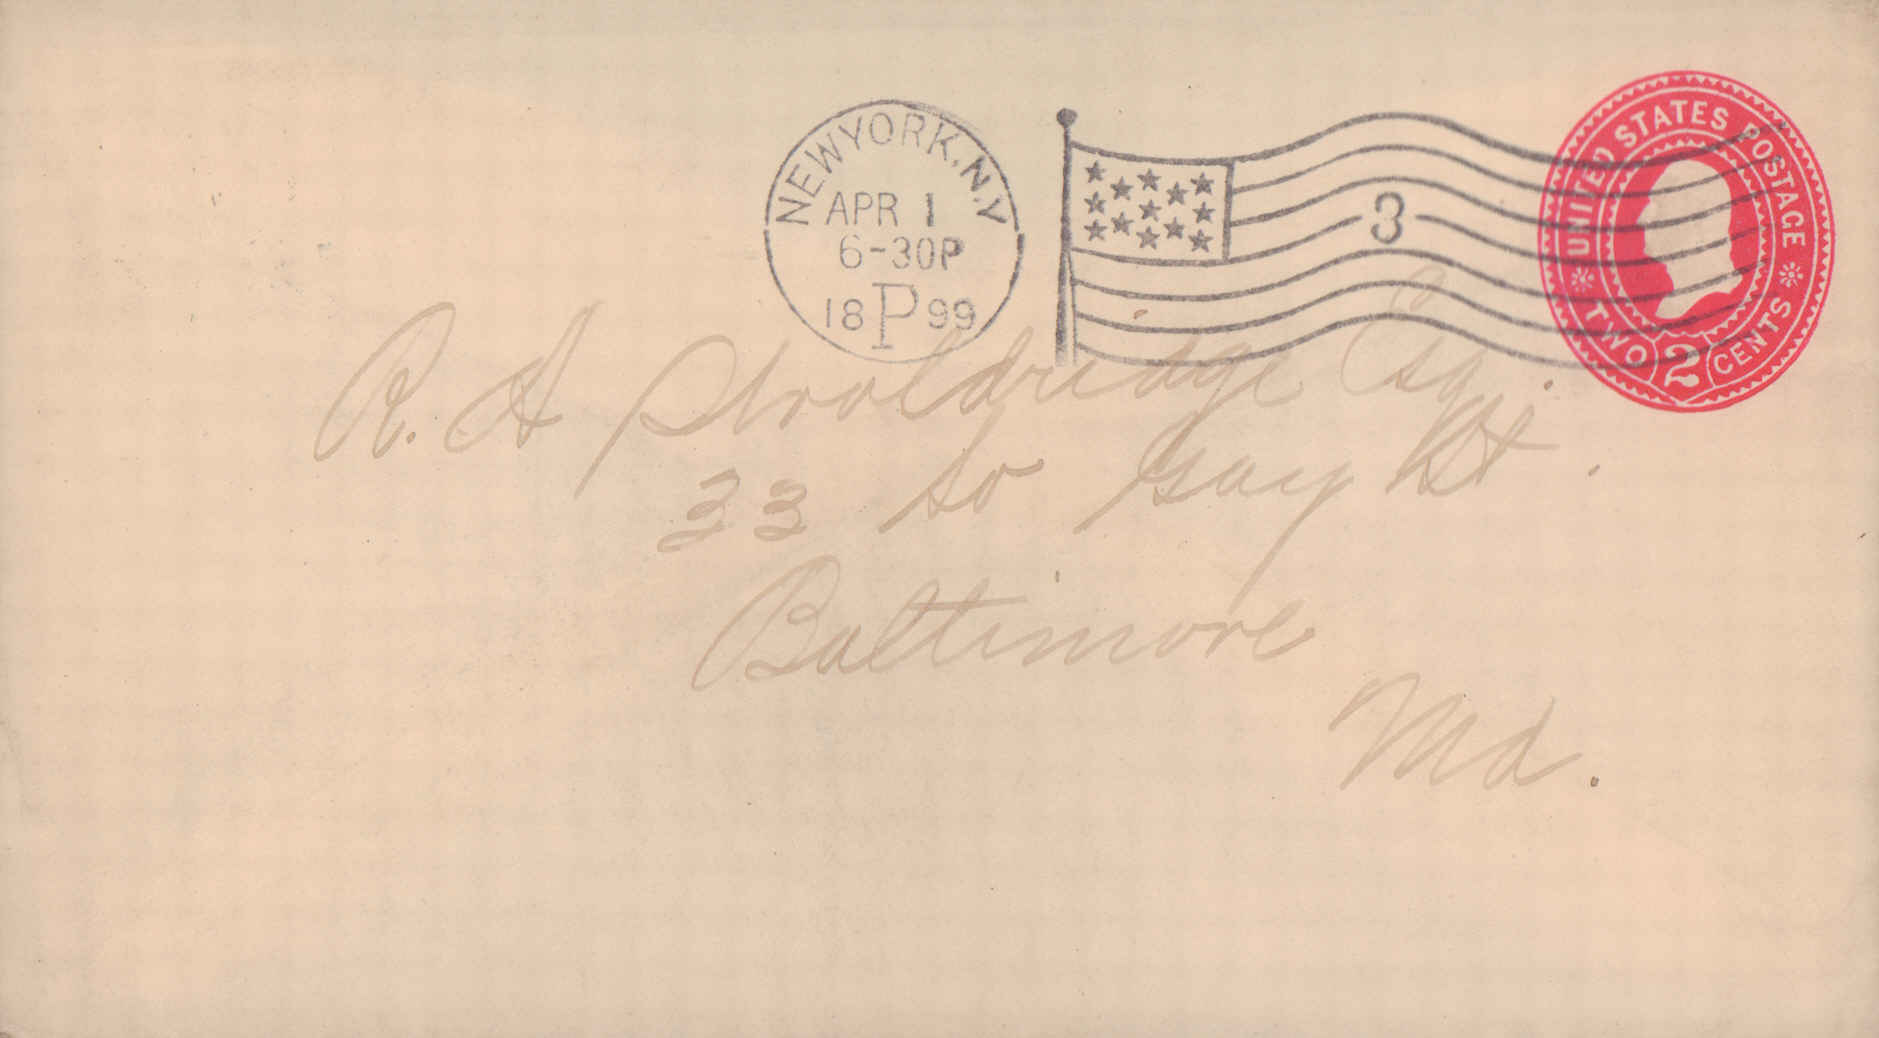 NEW YORK, N.Y.
APR 1
6-30P
18 P 99
3
UNITED STATES POSTAGE
TWO 2 CENTS
R. A Wooldridge Esq.
33 So Gay St.
Baltimore
Md.